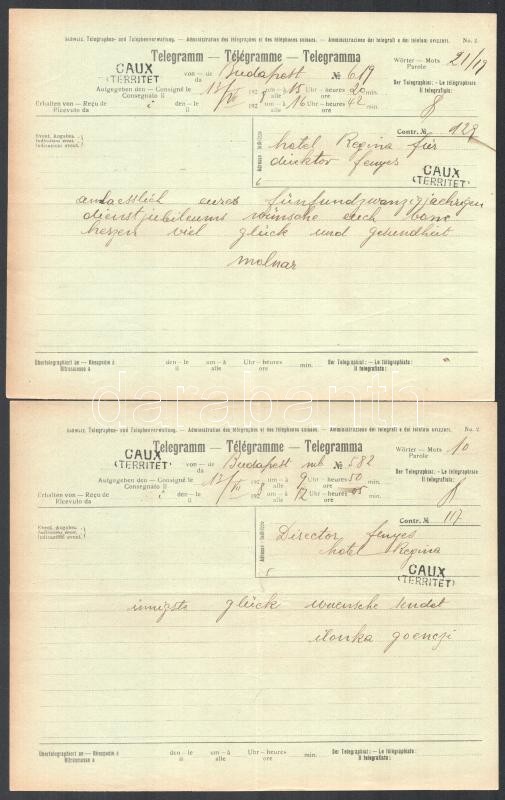 Schweiz. Telegraphen- und Telephonverwaltung. — Administration des télégraphes et des téléphones suisses. — Amministrazione dei telegrafi e dei telefoni svizzeri. No. 2.
Telegramm — Télégramme — Telegramma
CAUX
(TERRITET)
von — de Budapest № 619
da
Wörter — Mots 21/19
Parole
Aufgegeben den — Consigné le 13/XII 1928 um — à 15 Uhr — heures 20 min.
Consegnato il alle ore
Erhalten von — Reçu de i den — le 192 um — à 16 Uhr — heures 42 min.
Ricevuto da il alle ore
Der Telegraphist: — Le télégraphiste
Il telegrafista:
Contr. № 129
Event. Angaben.
Indications évent.
Indicazioni event.
Adresse - Indirizzo
hotel Regina für
direktor fenyes
CAUX
(TERRITET)
anlaesslich eures fünfundzwanzigjaehrigen
dienstjubileums wünsche euch vom
herzen viel glück und gesundheit
molnar
Übertelegraphiert an — Réexpédié à den — le um — à Uhr — heures min. Der Telegraphist: — Le télégraphiste:
Ritrasmesso à il alle ore Il telegrafista:
darabanth
Schweiz. Telegraphen- und Telephonverwaltung. — Administration des télégraphes et des téléphones suisses. — Amministrazione dei telegrafi e dei telefoni svizzeri. No. 2.
Telegramm — Télégramme — Telegramma
CAUX
(TERRITET)
von — de Budapest № 582
da
Wörter — Mots 10
Parole
Aufgegeben den — Consigné le 13/XII 1928 um — à 9 Uhr — heures 50 min.
Consegnato il alle ore
Erhalten von — Reçu de i den — le 192 um — à 12 Uhr — heures 05 min.
Ricevuto da il alle ore
Der Telegraphist: — Le télégraphiste
Il telegrafista:
Contr. № 117
Event. Angaben.
Indications évent.
Indicazioni event.
Adresse - Indirizzo
Director fenyes
hotel Regina
CAUX
(TERRITET)
innigste glück wuensche sendet
ilonka goenczi
Übertelegraphiert an — Réexpédié à den — le um — à Uhr — heures min. Der Telegraphist: — Le télégraphiste:
Ritrasmesso à il alle ore Il telegrafista: